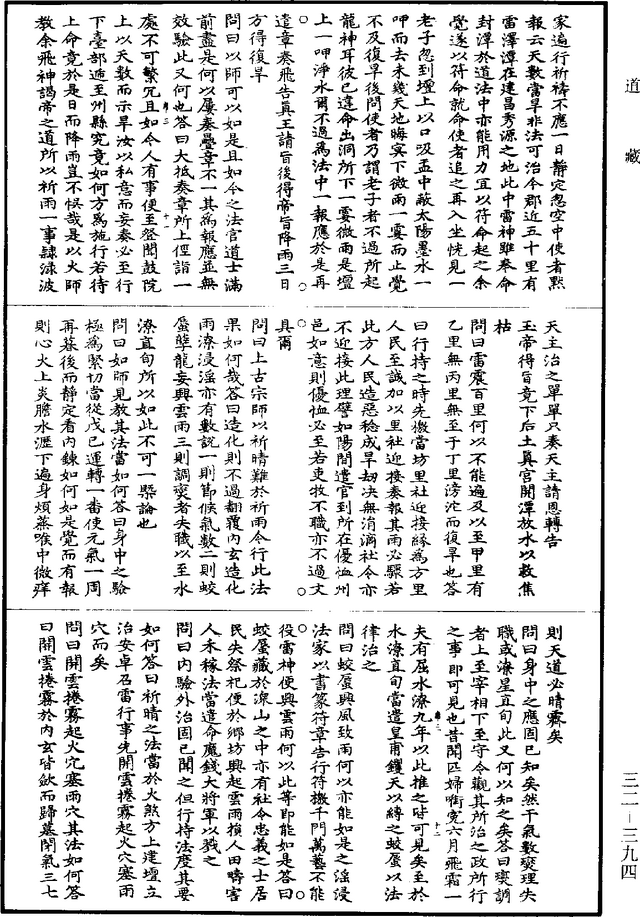 道藏
家遍行祈禱不應一日靜定忽空中使者黙
報云天數當旱非法可治今郡近五十里有
雷澤潭在建昌秀源之地此中雷神雖奉命
封潭於道法中亦能用力宜以符命起之余
覺遂以符命就命使者追之再入坐恍見一
老子忽到壇上以口吸盂中蔽太陽墨水一
呷而去未幾天地晦冥下微雨一霎而止覺
不及復旱後問使者乃謂老子者不過所起
龍神耳彼已違命出洞所下一霎微雨是壇
上一呷淨水爾不過為法中一報應於是再
違章奏飛告眞王請旨後得帝旨降雨三日
方得復旱
問曰以師可以如是且如今之法官道士滿
前盡是何以屢奏疊章不一其為報應並無
效驗此又何也答曰大抵奏章所上徑詣一
處不可繁冗且如今人有事便至登聞鼓院
上以天數而示旱汝以私意而妄奏必至行
下臺部逓至州縣究竟如何方為施行若待
上命竟於是日而降雨豈不悞哉是以火師
教余飛神謁帝之道所以祈雨一事隷淥波
天主治之單單只奏天主請恩轉告
玉帝得旨竟下后土眞宮開潭放水以救焦
枯
問曰雷震百里何以不能遍及以至甲里有
乙里無丙里無至于丁里滂沱而復旱也答
曰行持之時先檄當坊里社迎接緣為方里
人民至誠加以里社迎接奏報其雨必驟若
此方人民造惡稔成旱刼決無消濟社令亦
不迎接此理譬如陽間遣官到所在優恤州
邑如意則優恤必至若吏牧不職亦不過文
具爾
問曰上古宗師以祈晴難於祈雨今行此法
果如何哉答曰造化則不過翻覆內玄造化
雨潦浸滛亦有數說一則節候氣數二則蛟
蜃孽龍妄興雲雨三則調燮者失職以至水
潦直旬所以如此不可一槩論也
問曰如師見教其法當如何答曰身中之驗
極為緊切當從戊巳運轉一番使元氣一周
再𦶟後而靜定看內鍊如何如是覺而有報
則心火上炎膽水瀝下遍身煩蒸喉中微痒
則天道必晴霽矣
問曰身中之應固已知矣然干氣數燮理失
職或潦星直旬此又何以知之矣答曰燮調
者上至宰相下至守令觀其所治之政所行
之事即可見也昔聞匹婦啣寃六月飛霜一
夫有屈水潦九年以此推之皆可見矣至於
水潦直旬當遣皇甫钁天以縛之蛟蜃以法
律治之
問曰蛟蜃興風致雨何以亦能如是之滛浸
法家以書篆符章告行符檄千門萬藝不能
役雷神使興雲雨何以此等即能如是答曰
蛟蜃藏於深山之中亦有社令忠義之士居
民失祭祀便於鄉坊興起雲雨損人田疇害
人禾稼法當遣命魔錢大將軍以戮之
問曰內驗外治固已聞之但行持法度其要
如何答曰祈晴之法當於火煞方上建壇立
治安卓召雷行事先開雲捲霧起火穴塞雨
穴而矣
問曰開雲捲霧起火穴塞雨穴其法如何答
曰開雲捲霧於內玄皆歛而歸墓閉氣三七
三二－三九四